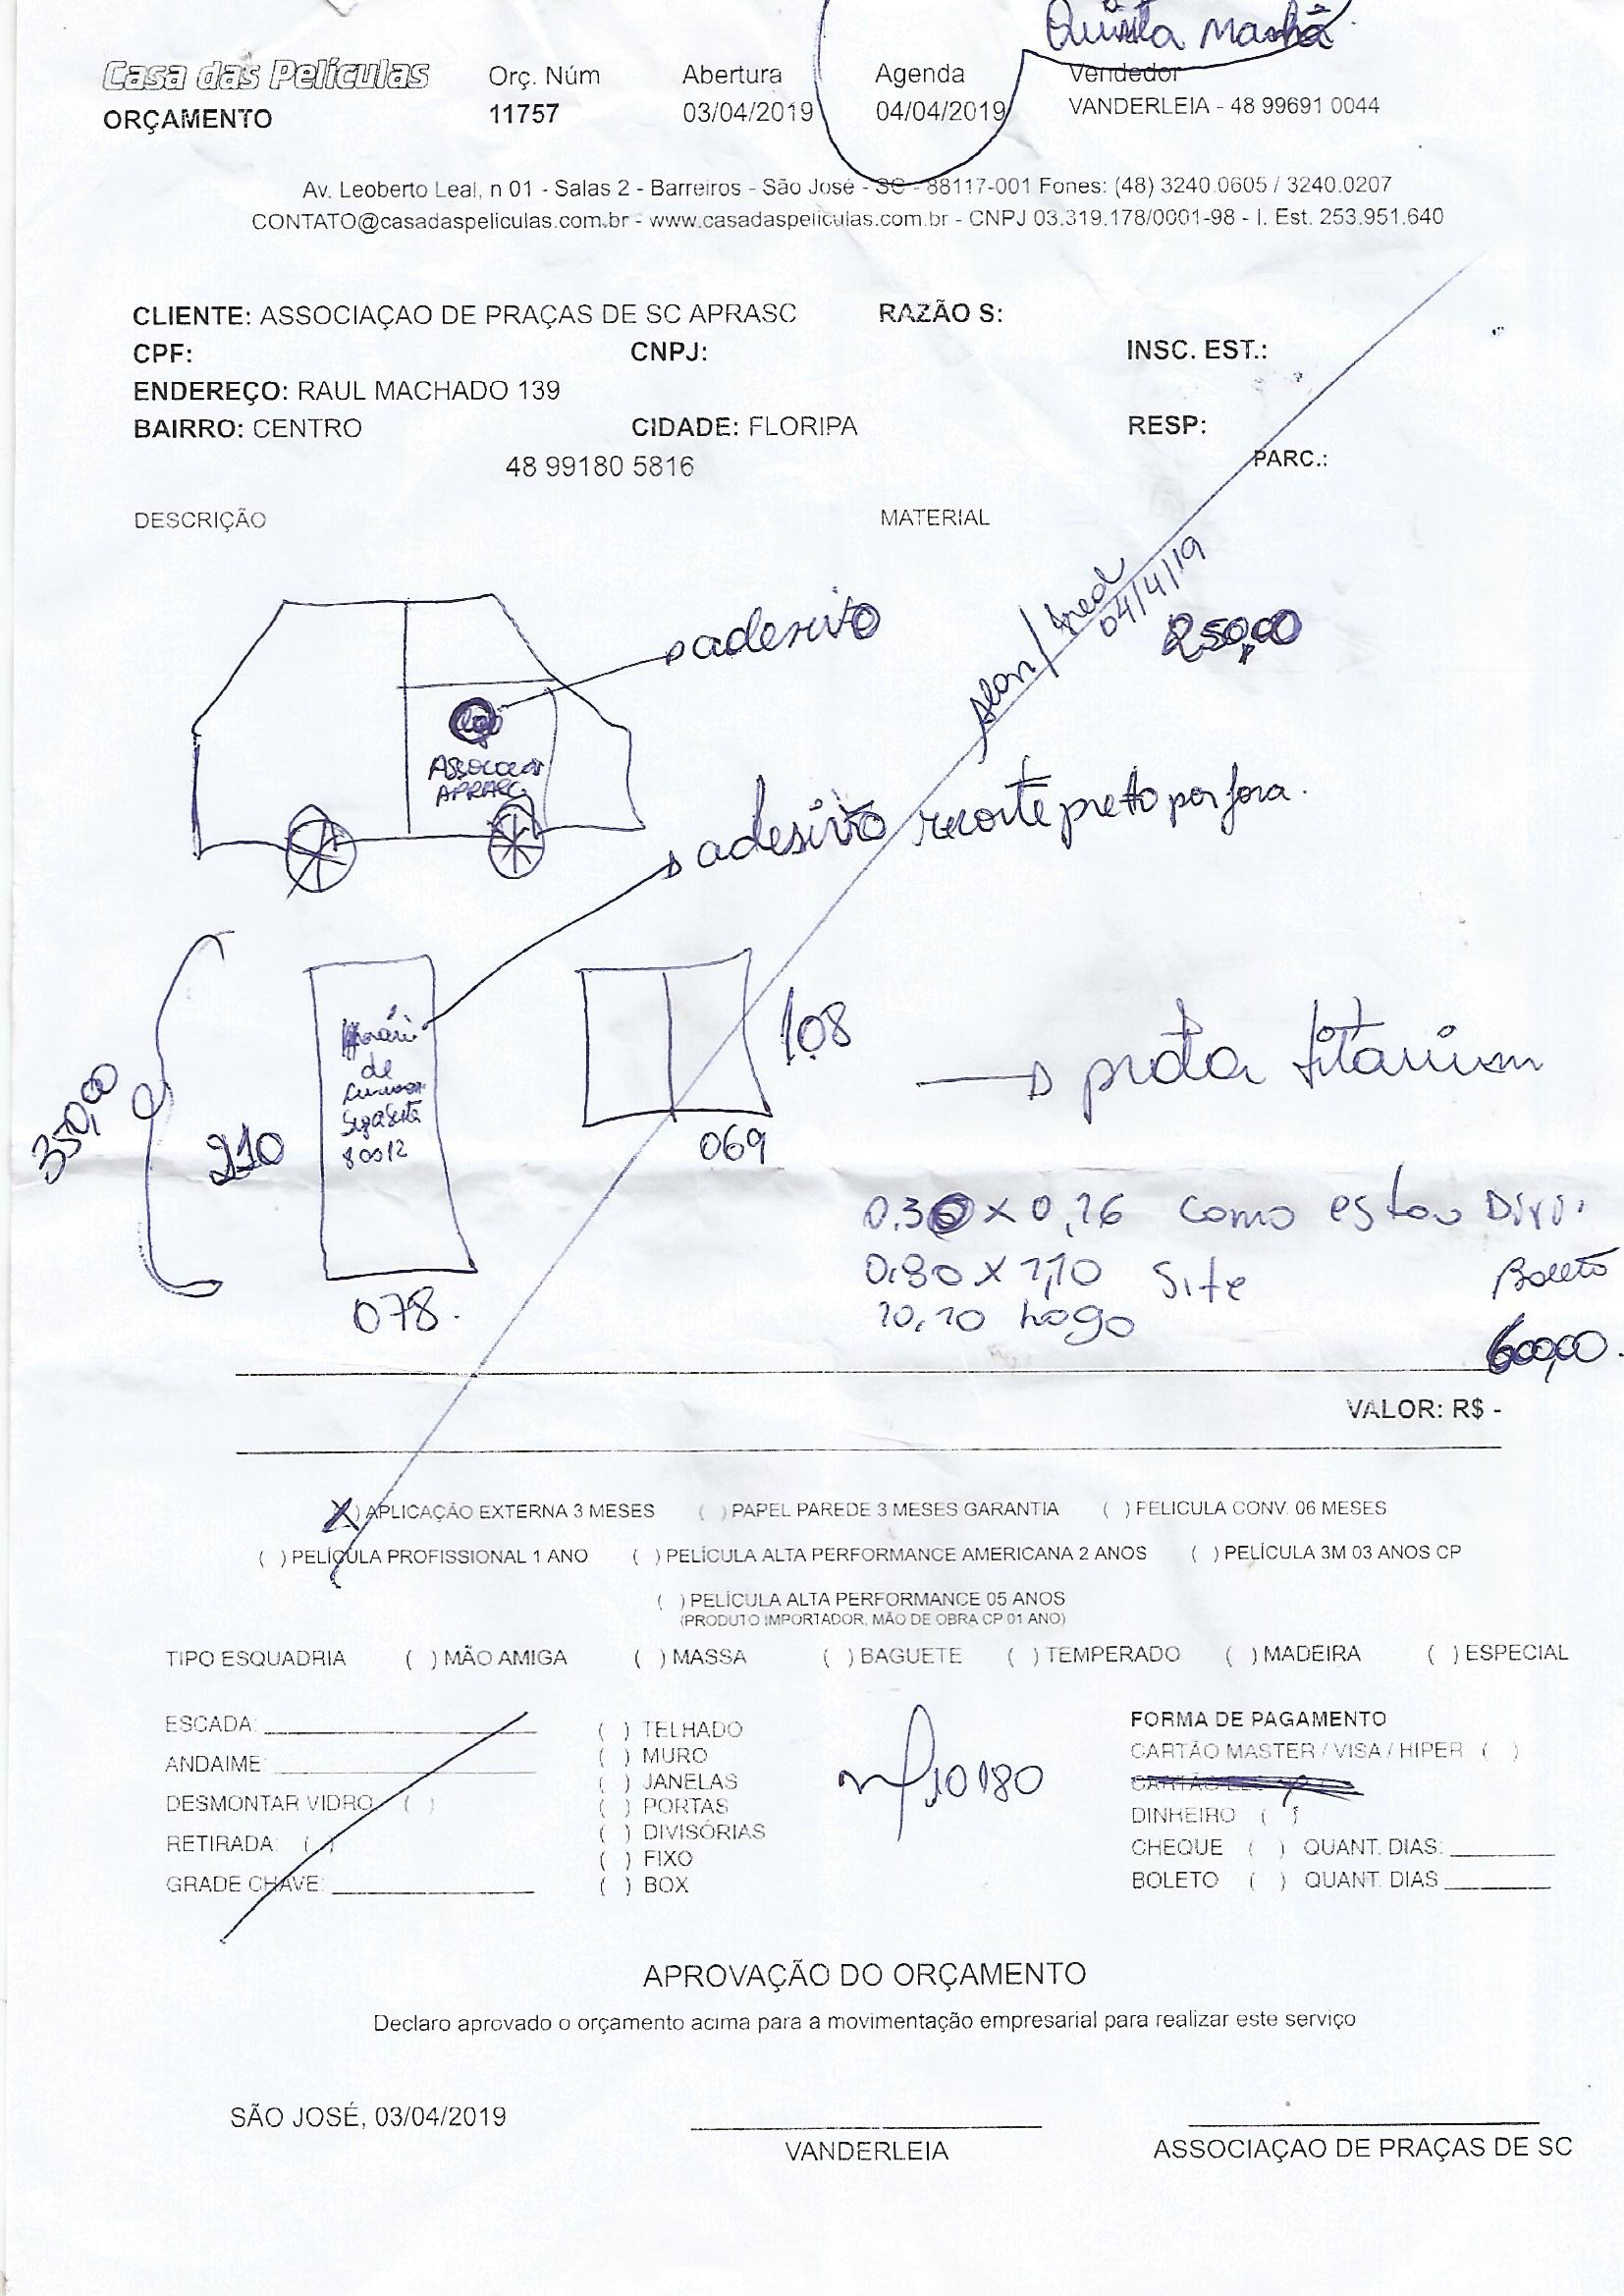 Quinta Manhã
Casa das Películas
ORÇAMENTO
Orç. Núm
11757
Abertura
03/04/2019
Agenda
04/04/2019
Vendedor
VANDERLEIA - 48 99691 0044
Av. Leoberto Leal, n 01 - Salas 2 - Barreiros - São José - SC - 88117-001 Fones: (48) 3240.0605 / 3240.0207
CONTATO@casadaspeliculas.com.br - www.casadaspeliculas.com.br - CNPJ 03.319.178/0001-98 - I. Est. 253.951.640
CLIENTE: ASSOCIAÇAO DE PRAÇAS DE SC APRASC RAZÃO S:
CPF: CNPJ: INSC. EST.:
ENDEREÇO: RAUL MACHADO 139
BAIRRO: CENTRO CIDADE: FLORIPA RESP:
48 99180 5816 PARC.:
DESCRIÇÃO MATERIAL
adesivo
04/4/19
250,00
adesivo recorte preto por fora.
350,00
210
de
078.
108
069
prata titanium
0,26 como estou
0,80 x 1,10 Site
Boleto
10,10 Logo
600,00.
VALOR: R$ -
(X) APLICAÇÃO EXTERNA 3 MESES ( ) PAPEL PAREDE 3 MESES GARANTIA ( ) PELICULA CONV. 06 MESES
( ) PELÍCULA PROFISSIONAL 1 ANO ( ) PELÍCULA ALTA PERFORMANCE AMERICANA 2 ANOS ( ) PELÍCULA 3M 03 ANOS CP
( ) PELÍCULA ALTA PERFORMANCE 05 ANOS
(PRODUTO IMPORTADOR, MÃO DE OBRA CP 01 ANO)
TIPO ESQUADRIA ( ) MÃO AMIGA ( ) MASSA ( ) BAGUETE ( ) TEMPERADO ( ) MADEIRA ( ) ESPECIAL
ESCADA:
ANDAIME:
DESMONTAR VIDRO ( )
RETIRADA: ( )
GRADE CHAVE:
( ) TELHADO
( ) MURO
( ) JANELAS
( ) PORTAS
( ) DIVISÓRIAS
( ) FIXO
( ) BOX
nf 10180
FORMA DE PAGAMENTO
CARTÃO MASTER / VISA / HIPER ( )
DINHEIRO ( )
CHEQUE ( ) QUANT. DIAS:
BOLETO ( ) QUANT. DIAS
APROVAÇÃO DO ORÇAMENTO
Declaro aprovado o orçamento acima para a movimentação empresarial para realizar este serviço
SÃO JOSÉ, 03/04/2019
VANDERLEIA
ASSOCIAÇAO DE PRAÇAS DE SC